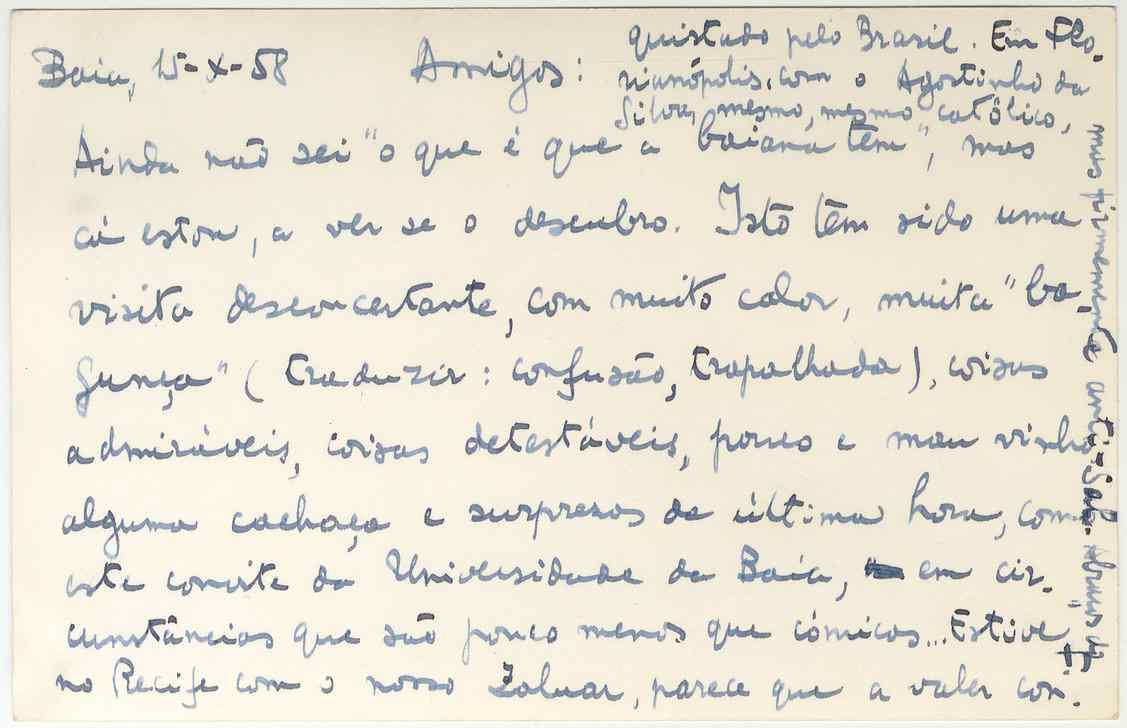 Baía, 15-X-58 Amigos:
Ainda não sei "o que é que a baiana tem", mas
cá estou, a ver se o descubro. Isto têm sido uma
visita desconcertante, com muito calor, muita "ba-
gunça" (traduzir: confusão, trapalhada), coisas
admiráveis, coisas detestáveis, pouco e mau vinho
alguma cachaça e surpresas de última hora, como
este convite da Universidade da Baía, em cir-
cunstâncias que são pouco menos que cómicas... Estive
no Recife com o nosso Zaluar, parece que a valer con-
quistado pelo Brasil. Em Flo-
rianópolis, com o Agostinho da
Silva, mesmo, mesmo católico,
mas firmemente anti-Sal. Abraços do